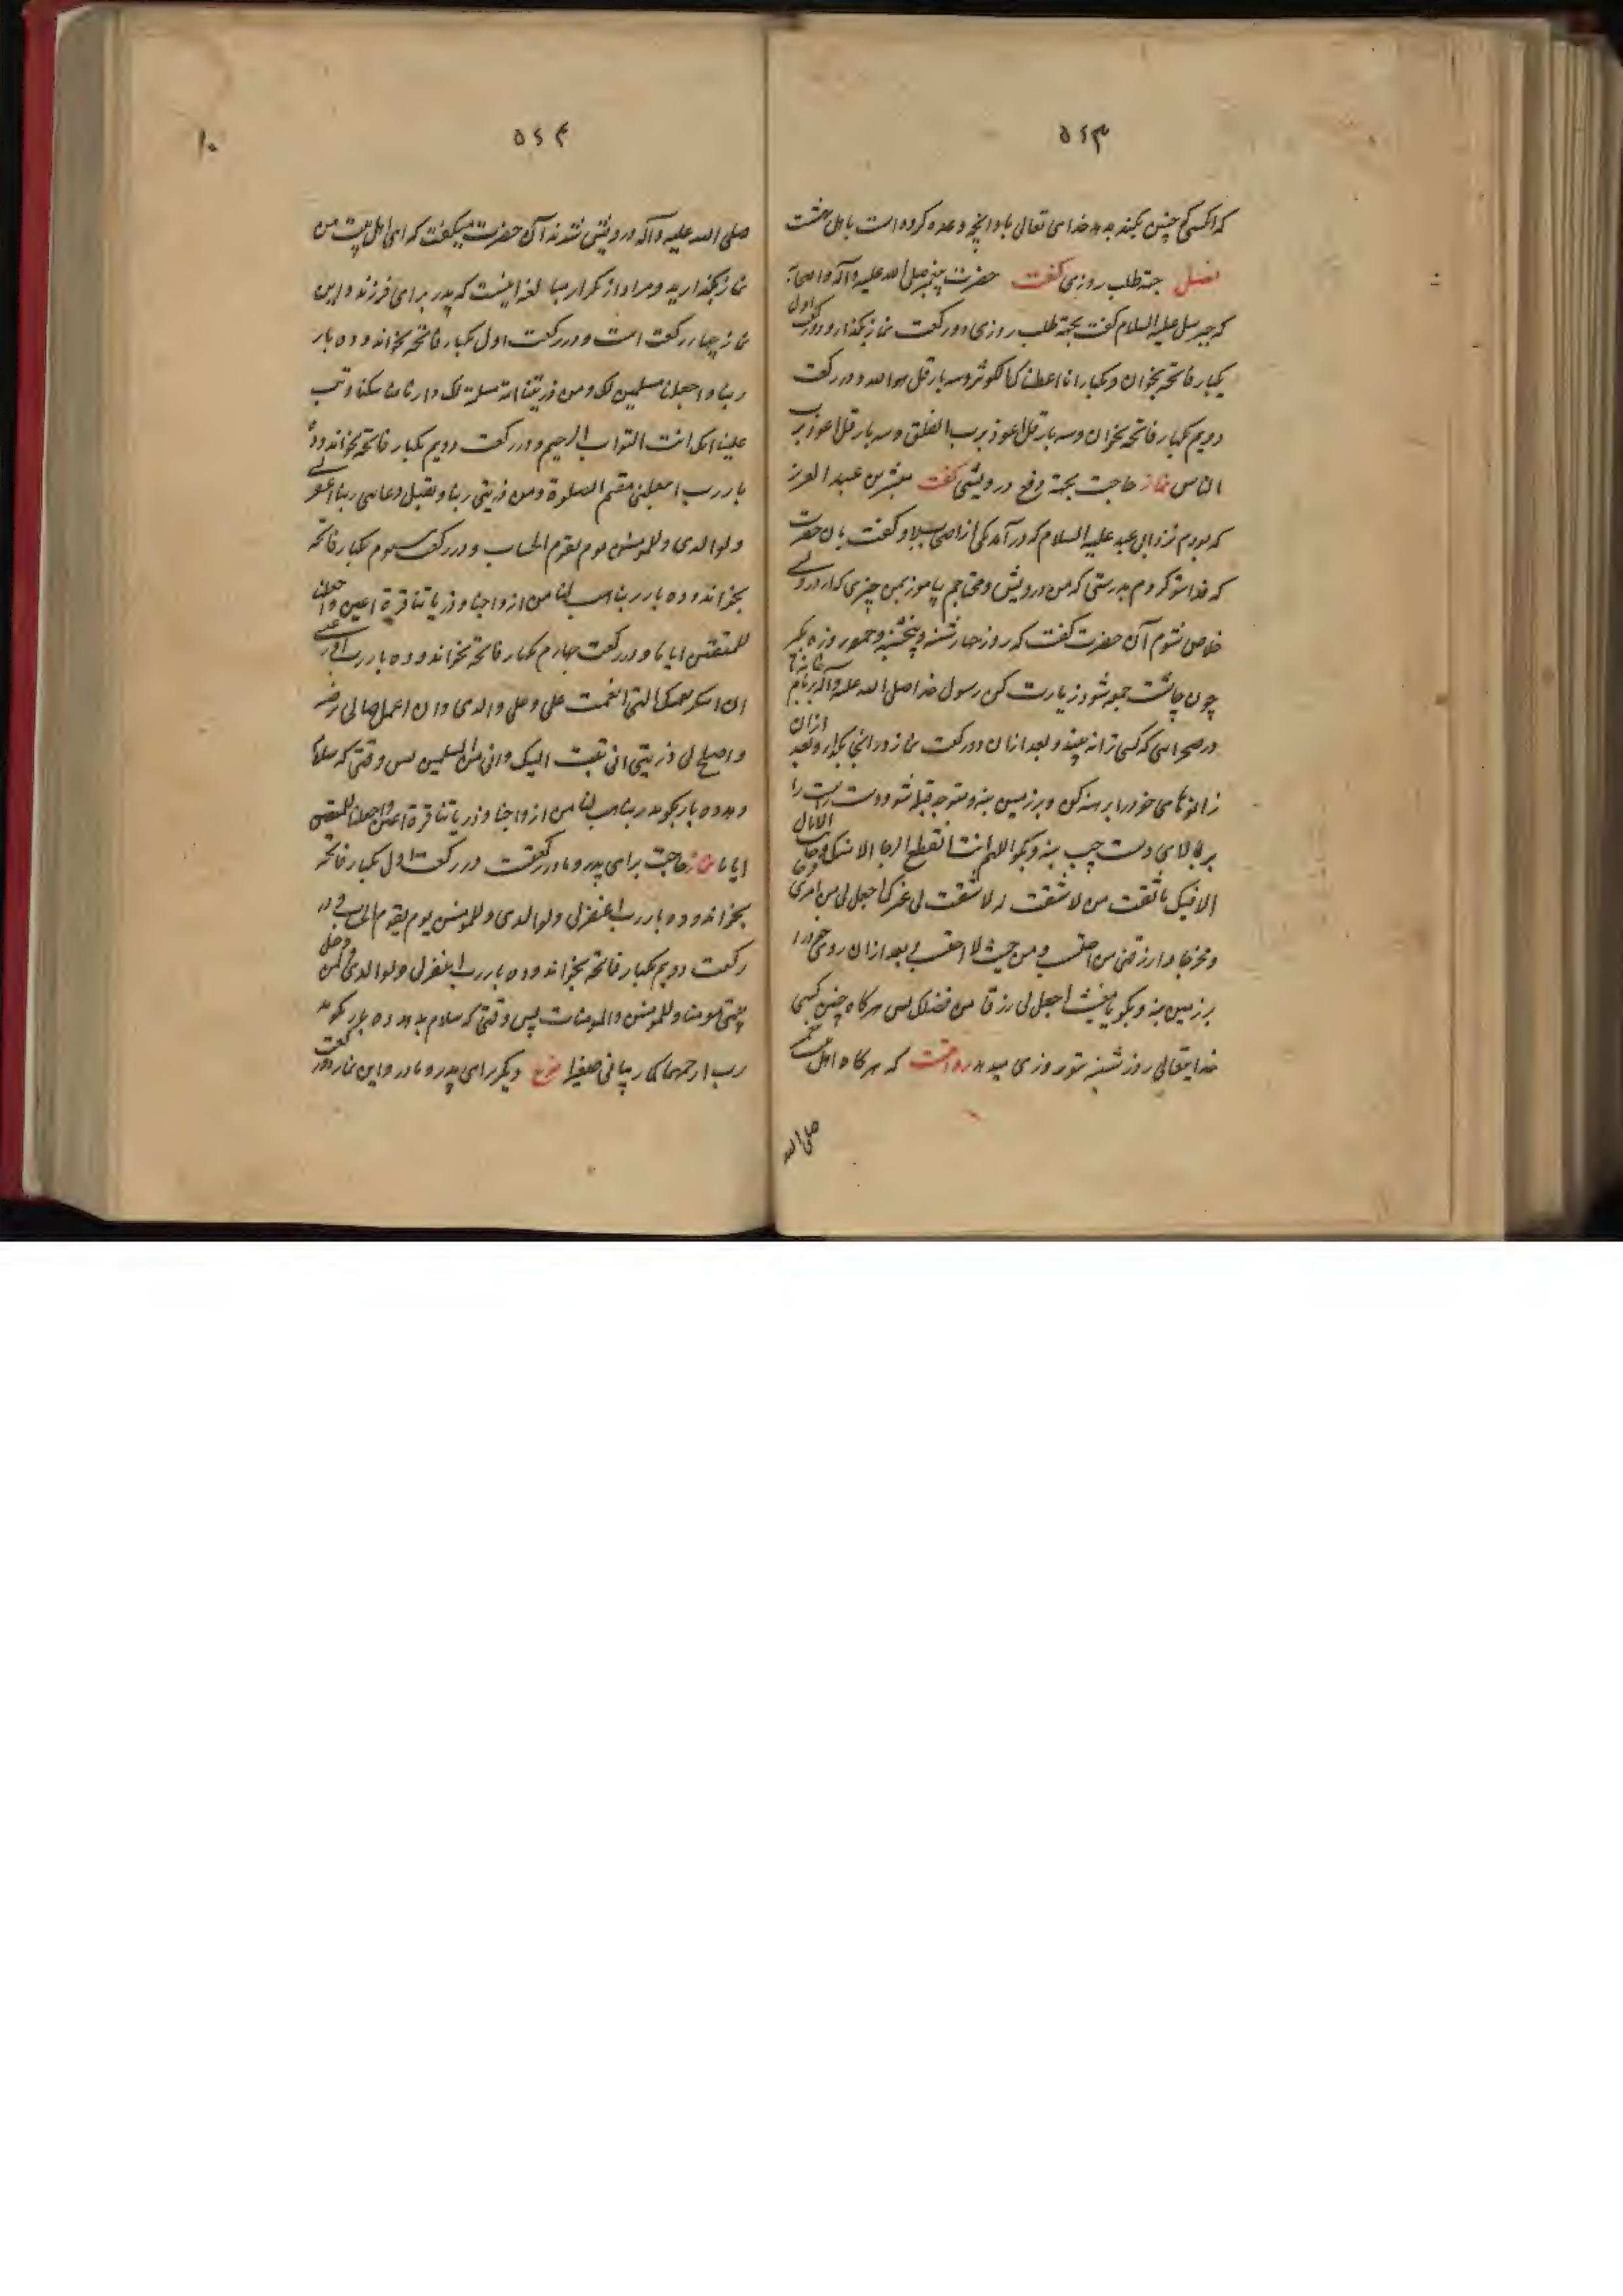 ۵۶۳
که اگر کسی چنین بکند بدهد خدای تعالی باو آنچه وعده کرده است باهل بهشت
فصل جهة طلب روزی گفت حضرت پیغمبر صلی الله علیه وآله واصحابه
که جبرئیل علیه السلام گفت بجهة طلب روزی دو رکعت نماز بگذار و در رکعت اول
یکبار فاتحه بخوان و یکبار انا اعطیناک الکوثر و سه بار قل هو الله و در رکعت
دویم یکبار فاتحه بخوان و سه بار قل اعوذ برب الفلق و سه بار قل اعوذ برب
الناس نماز حاجت بجهة دفع درویشی گفت مبشر بن عبد العزیز
که بودم نزد ابی عبد علیه السلام که درآمد یکی از اصحاب او و گفت بان حضرت
که فدا شو کردم بدرستی که من درویش و محتاجم بیاموز بمن چیزی که از درویشی
خلاص شوم آن حضرت گفت که روز چهارشنبه و پنجشنبه و جمعه روزه بگیر
چون چاشت جمعه شود زیارت کن رسول خدا صلی الله علیه وآله بر بام خانه یا
در صحرایی که کسی ترا نه بیند و بعد از ان دو رکعت نماز در آنجا بگذار و بعد ازان
زانوهای خود را برهنه کن و بر زمین بنه و متوجه قبله شو و دست راست را
بر بالای دست چپ بنه و بگو اللهم انت انت انقطع الرجا الا منک و خابت الامال
الا فیک یا ثقت من لا ثقت له لا ثقت لی غیرک اجعل لی من امری فرجا
و مخرجا وارزقنی من حیث احتسب و من حیث لا احتسب بعد ازان روی خود را
بر زمین بنه و بگو یا مغیث اجعل لی رزقا من فضلک پس هرگاه چنین کنی
خدایتعالی روز شنبه تو روزی میدهد روایتست که هرگاه اهل بیت پیغمبر
صلی الله
۵۶۴
۱۰
صلی الله علیه وآله درویش شدند آن حضرت میگفت که ای اهل بیت من
نماز بگذارید و مراد از تکرار مبالغه اینست که پدر برای فرزند و این
نماز چهار رکعت است و در رکعت اول یکبار فاتحه بخواند و ده بار
ربنا واجعلنا مسلمین لک ومن ذریتنا امة مسلمة لک وارنا مناسکنا وتب
علینا انک انت التواب الرحیم و در رکعت دویم یکبار فاتحه بخواند و ده
بار رب اجعلنی مقیم الصلوة ومن ذریتی ربنا وتقبل دعایی ربنا اغفر لی
ولوالدی وللمومنین یوم یقوم الحساب و در رکعت سیوم یکبار فاتحه
بخواند و ده بار ربنا هب لنا من ازواجنا وذریاتنا قرة اعین واجعلنا
للمتقین اماما و در رکعت چهارم یکبار فاتحه بخواند و ده بار رب اوزعنی
ان اشکر نعمتک التی انعمت علی وعلی والدی وان اعمل صالحا ترضه
واصلح لی فی ذریتی انی تبت الیک وانی من المسلمین پس وقتی که سلام
دهد ده بار بگوید ربنا هب لنا من ازواجنا وذریاتنا قرة اعین واجعلنا للمتقین
اماما نماز حاجت برای پدر و مادر گفت در رکعت اول یکبار فاتحه
بخواند و ده بار رب اغفر لی ولوالدی وللمومنین یوم یقوم الحساب و در
رکعت دویم یکبار فاتحه بخواند و ده بار رب اغفر لی ولوالدی ولمن دخل
بیتی مومنا وللمومنین والمومنات پس وقتی که سلام بدهد ده بار بگوید
رب ارحمهما کما ربیانی صغیرا نوع دیگر برای پدر و مادر و این نماز دو رکعت